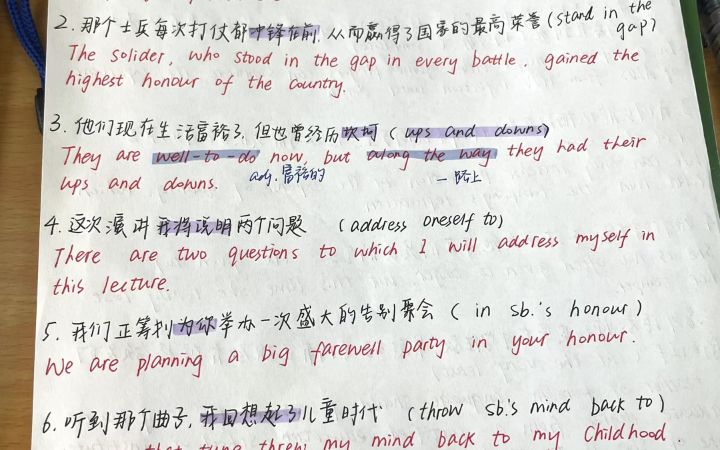 2. 那个士兵每次打仗都冲锋在前,从而赢得了国家的最高荣誉(stand in the gap)
The solider, who stood in the gap in every battle, gained the
highest honour of the country.
3. 他们现在生活富裕了,但也曾经历坎坷(ups and downs)
They are well-to-do now, but along the way they had their
ups and downs. adj.富裕的 一路上
4. 这次演讲我将说明两个问题 (address oneself to)
There are two questions to which I will address myself in
this lecture.
5. 我们正筹划为你举办一次盛大的告别聚会 (in sb.'s honour)
We are planning a big farewell party in your honour.
6. 听到那个曲子,我回想起了儿童时代 (throw sb.'s mind back to)
that tune threw my mind back to my Childhood.